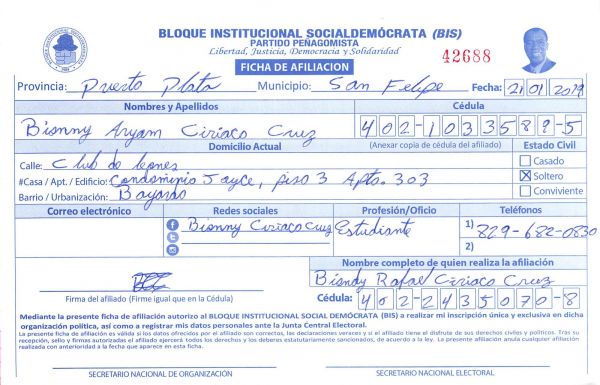 BLOQUE INSTITUCIONAL SOCIALDEMÓCRATA (BIS)
PARTIDO PEÑAGOMISTA
Libertad, Justicia, Democracia y Solidaridad
FICHA DE AFILIACION
42688
Provincia: Puerto Plata Municipio: San Felipe Fecha: 21/01/2019
Nombres y Apellidos Cédula
Bisnny Aryam Ciriaco Cruz 402-1033589-5
(Anexar copia de cédula del afiliado)
Domicilio Actual Estado Civil
Calle: Club de leones Casado
#Casa / Apt. / Edificio: Condominio Jayce, piso 3 Apto. 303 Soltero
Barrio / Urbanización: Bayardo Conviviente
Correo electrónico Redes sociales Profesión/Oficio Teléfonos
Bisnny Ciriaco Cruz Estudiante 1) 829-682-0830
2)
Nombre completo de quien realiza la afiliación
Bisndy Rafael Ciriaco Cruz
Firma del afiliado (Firme igual que en la Cédula) Cédula: 402-2435070-8
Mediante la presente ficha de afiliación autorizo al BLOQUE INSTITUCIONAL SOCIAL DEMÓCRATA (BIS) a realizar mi inscripción única y exclusiva en dicha
organización política, así como a registrar mis datos personales ante la Junta Central Electoral.
La presente ficha de afiliación es válida si los datos ofrecidos por el afiliado son correctos, las declaraciones veraces y si el afiliado tiene el disfrute de sus derechos civiles y políticos. Tras su
recepción, sello y firmas autorizadas el afiliado ejercerá todos los derechos y los deberes estatutariamente sancionados, de acuerdo a la ley. La presente afiliación anula cualquier afiliación
realizada con anterioridad a la fecha que aparece en esta ficha.
SECRETARIO NACIONAL DE ORGANIZACIÓN SECRETARIO NACIONAL ELECTORAL